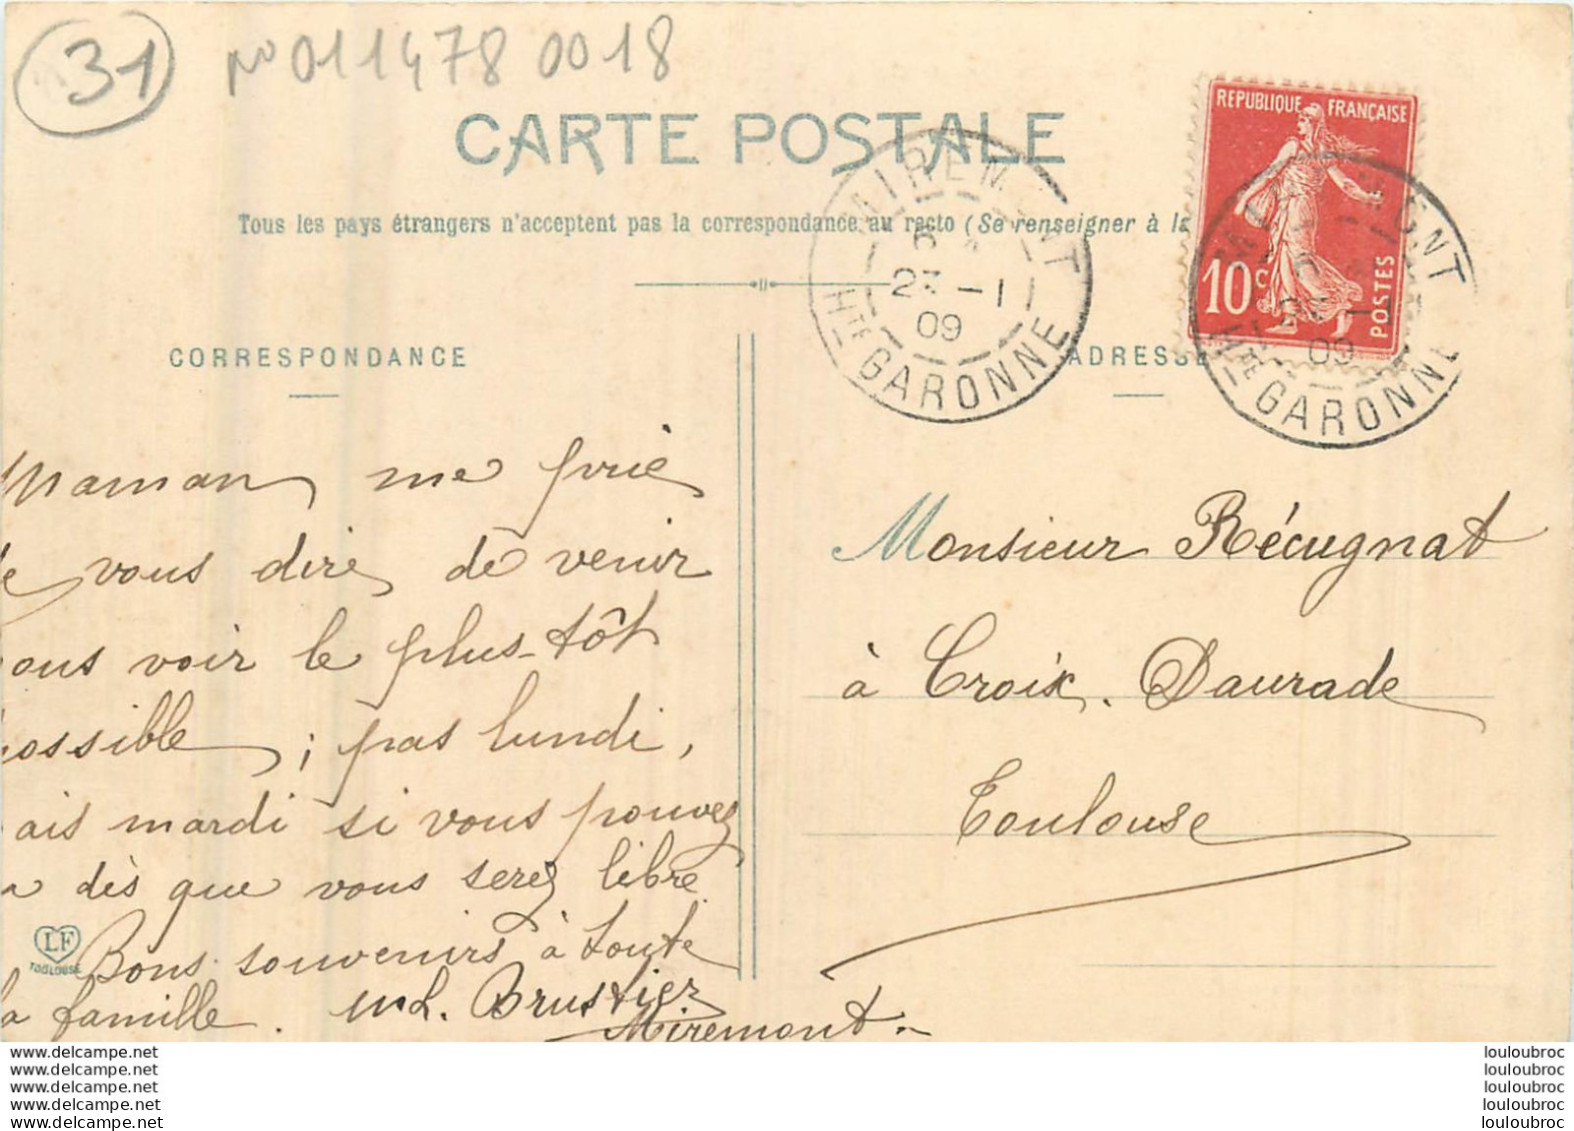 31
N° 011478 0018
CARTE POSTALE
Tous les pays étrangers n'acceptent pas la correspondance au recto (Se renseigner à la
REPUBLIQUE FRANÇAISE
10c
POSTES
MIREMONT
23 -1
09
Hte GARONNE
MIREMONT
09
Hte GARONNE
CORRESPONDANCE
ADRESSE
Maman me prie
de vous dire de venir
nous voir le plus-tôt
possible ; pas lundi,
mais mardi si vous pouvez
dès que vous serez libre
Bons souvenirs à toute
la famille. M.L. Brustier
Miremont
LF
TOULOUSE
Monsieur Récugnat
à Croix-Daurade
Toulouse
www.delcampe.net
www.delcampe.net
www.delcampe.net
www.delcampe.net
www.delcampe.net
louloubroc
louloubroc
louloubroc
louloubroc
louloubroc